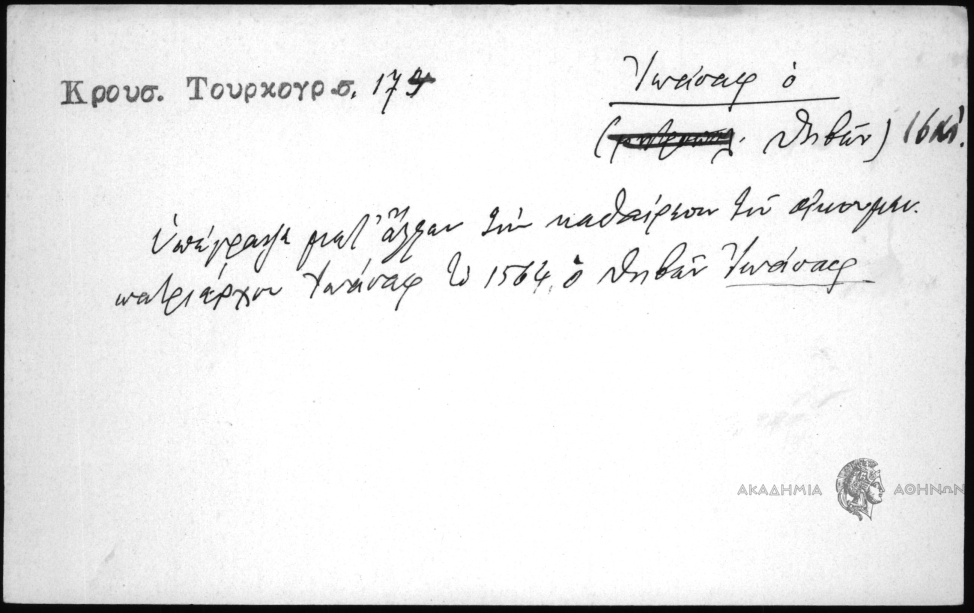 Κρουσ. Τουρκογρ σ. 174
Ἰωάσαφ ὁ
( Θηβῶν) 16 αἰ.
Ὑπέγραψε μετ' ἄλλων τὴν καθαίρεσιν τοῦ οἰκουμεν.
πατριάρχου Ἰωάσαφ τῷ 1564 ὁ Θηβῶν Ἰωάσαφ
ΑΚΑΔΗΜΙΑ ΑΘΗΝΩΝ